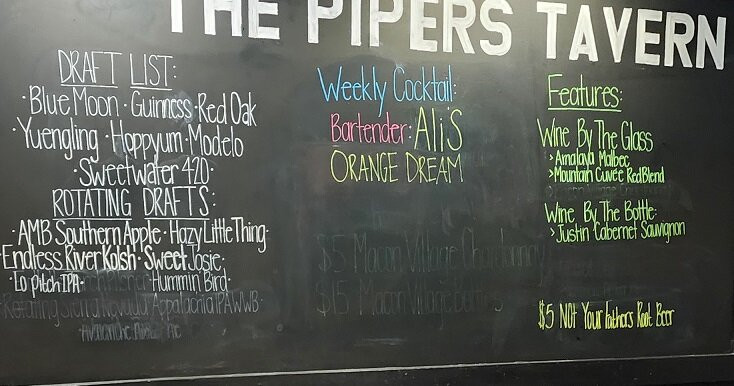 THE PIPERS TAVERN
DRAFT LIST:
·Blue Moon · Guinness · Red Oak
·Yuengling · Hoppyum · Modelo
·Sweetwater 420·
ROTATING DRAFTS:
·AMB Southern Apple · Hazy Little Thing·
Endless River Kolsh · Sweet Josie·
·Lo pitch IPA· Hummin Bird
Weekly Cocktail:
Bartender: AliS
ORANGE DREAM
$5 Macon Village Chardonnay
$15 Macon Village
Features:
Wine By The Glass
>Amalaya Malbec
>Mountain Cuvée Red Blend
Wine By The Bottle:
>Justin Cabernet Sauvignon
$5 Not Your Fathers Root Beer